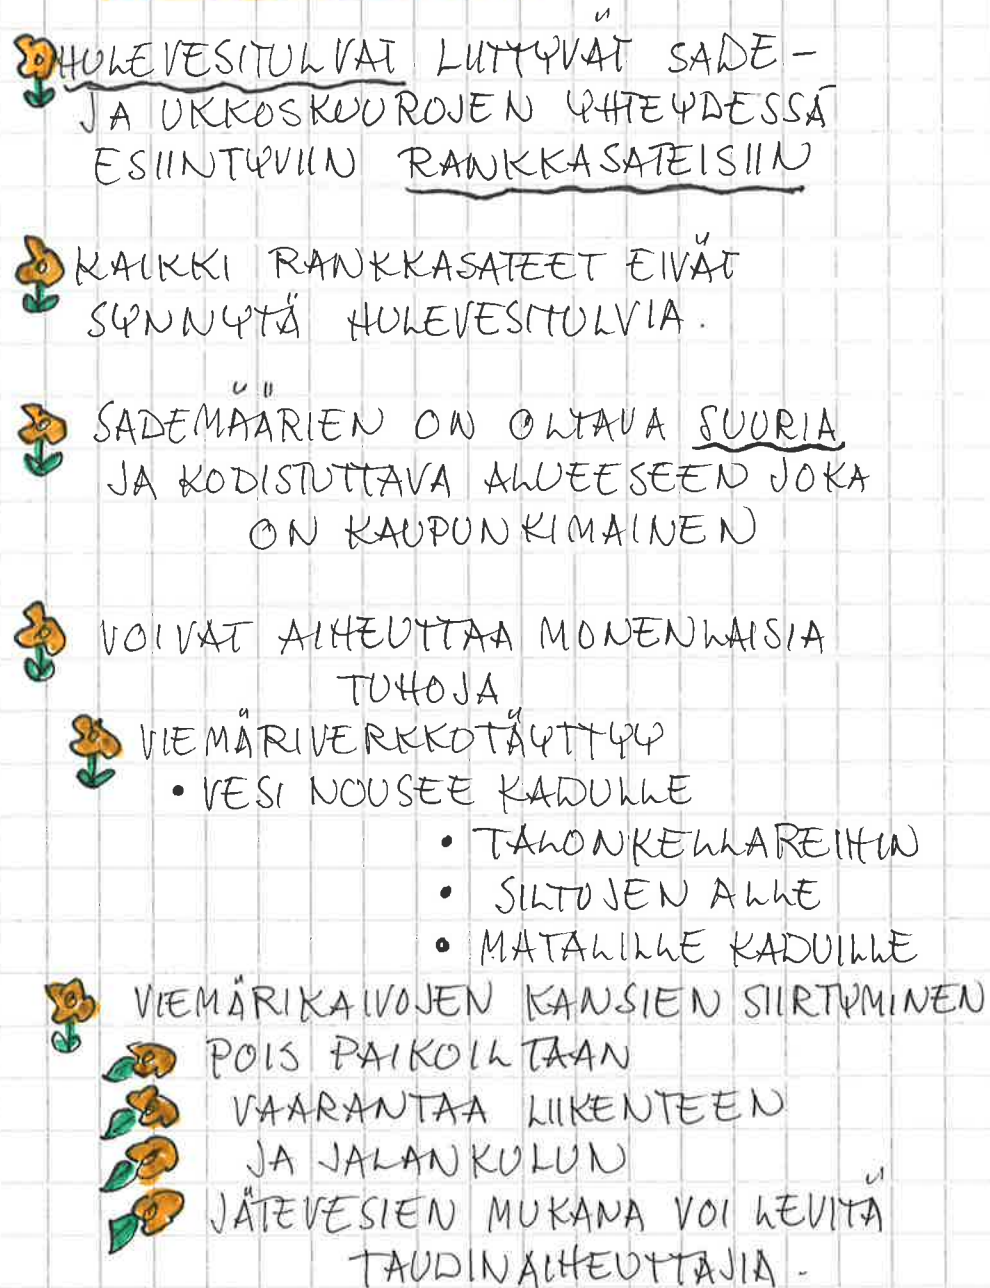 HULEVESITULVAT LIITTYVÄT SADE-
JA UKKOSKUUROJEN YHTEYDESSÄ
ESIINTYVIIN RANKKASATEISIIN
KAIKKI RANKKASATEET EIVÄT
SYNNYTÄ HULEVESITULVIA.
SADEMÄÄRIEN ON OLTAVA SUURIA
JA KODISTUTTAVA ALUEESEEN JOKA
ON KAUPUNKIMAINEN
VOIVAT AIHEUTTAA MONENLAISIA
TUHOJA
VIEMÄRIVERKKO TÄYTTYY
• VESI NOUSEE KADULLE
• TALON KELLAREIHIN
• SILTOJEN ALLE
• MATALILLE KADUILLE
VIEMÄRIKAIVOJEN KANSIEN SIIRTYMINEN
POIS PAIKOILTAAN
VAARANTAA LIIKENTEEN
JA JALANKULUN
JÄTEVESIEN MUKANA VOI LEVITÄ
TAUDINAIHEUTTAJIA.